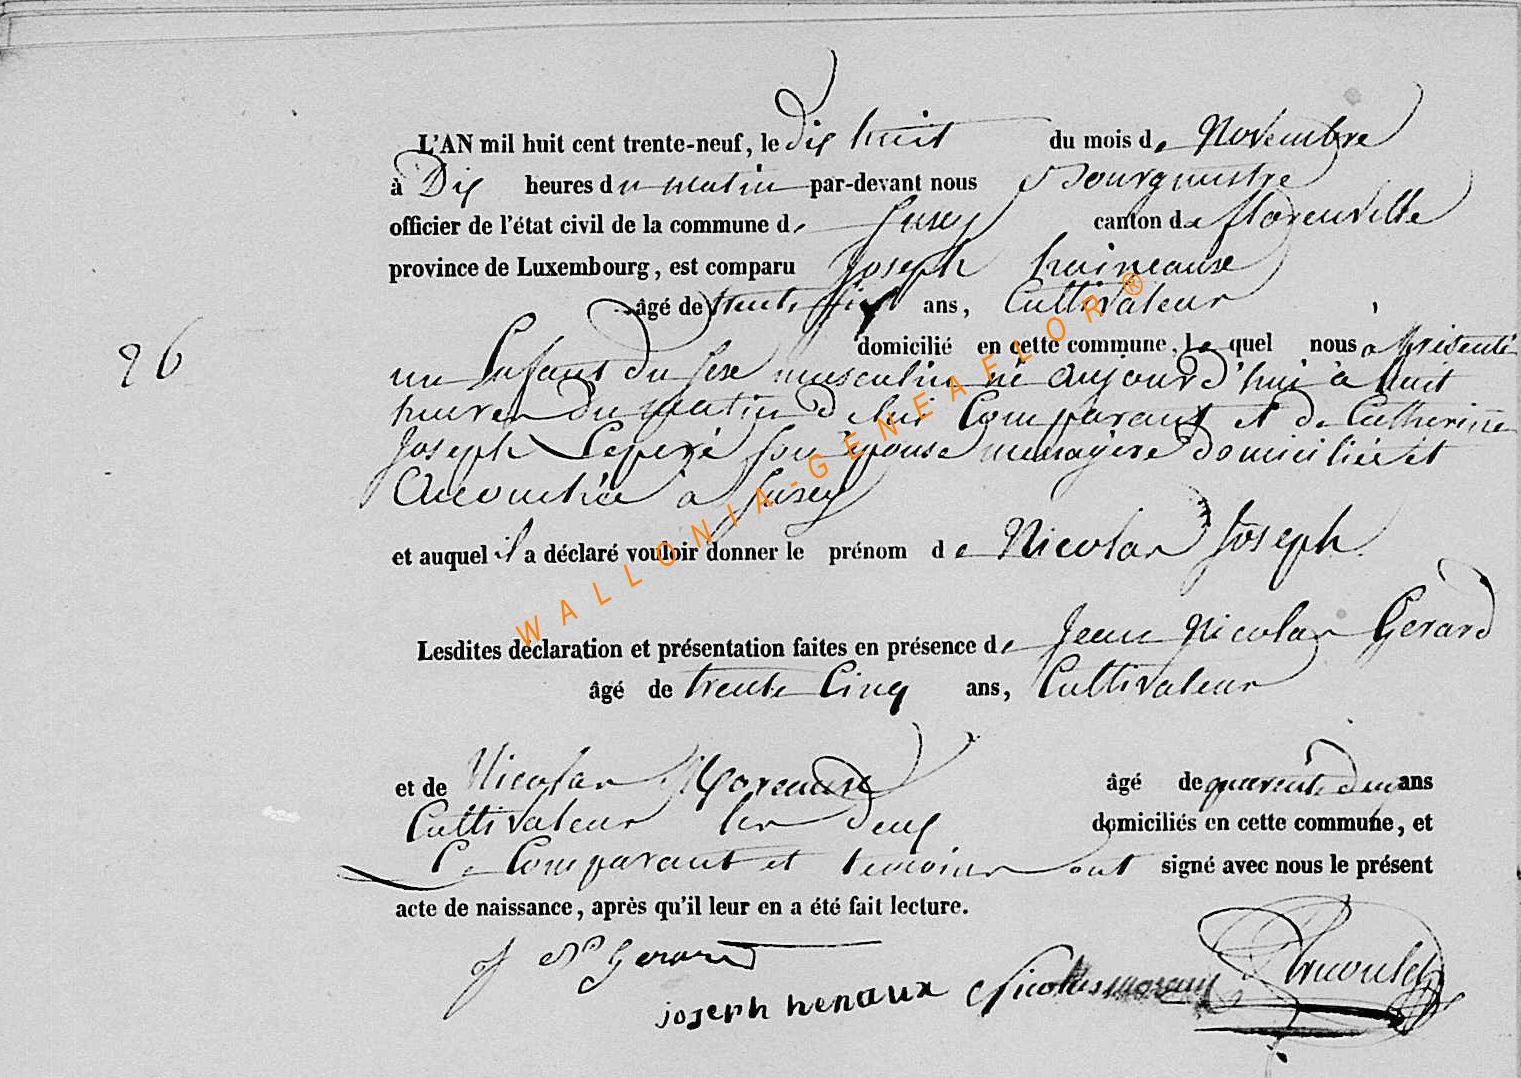 L'AN mil huit cent trente-neuf, le dix huit du mois de Novembre
à Dix heures du matin par-devant nous Bourgmestre
officier de l'état civil de la commune de Jusey canton de florenville
province de Luxembourg, est comparu Joseph haineause
âgé de trente ans, Cultivateur
domicilié en cette commune, le quel nous a présenté
26
un Enfant du sexe masculin né aujourd'hui à huit
heures du matin de lui Comparant et de Catherine
Joseph Leperé son épouse ménagère domiciliée et
Accouchée à Jusey
et auquel il a déclaré vouloir donner le prénom de Nicolas Joseph
Lesdites déclaration et présentation faites en présence de Jean Nicolas Gerard
âgé de trente Cinq ans, Cultivateur
et de Nicolas Moreause âgé de quarente deux ans
Cultivateur les deux domiciliés en cette commune, et
Le Comparant et temoins ont signé avec nous le présent
acte de naissance, après qu'il leur en a été fait lecture.
J N Gerard
joseph henaux Nicolas
WALLONIA-GENEAFLOR®